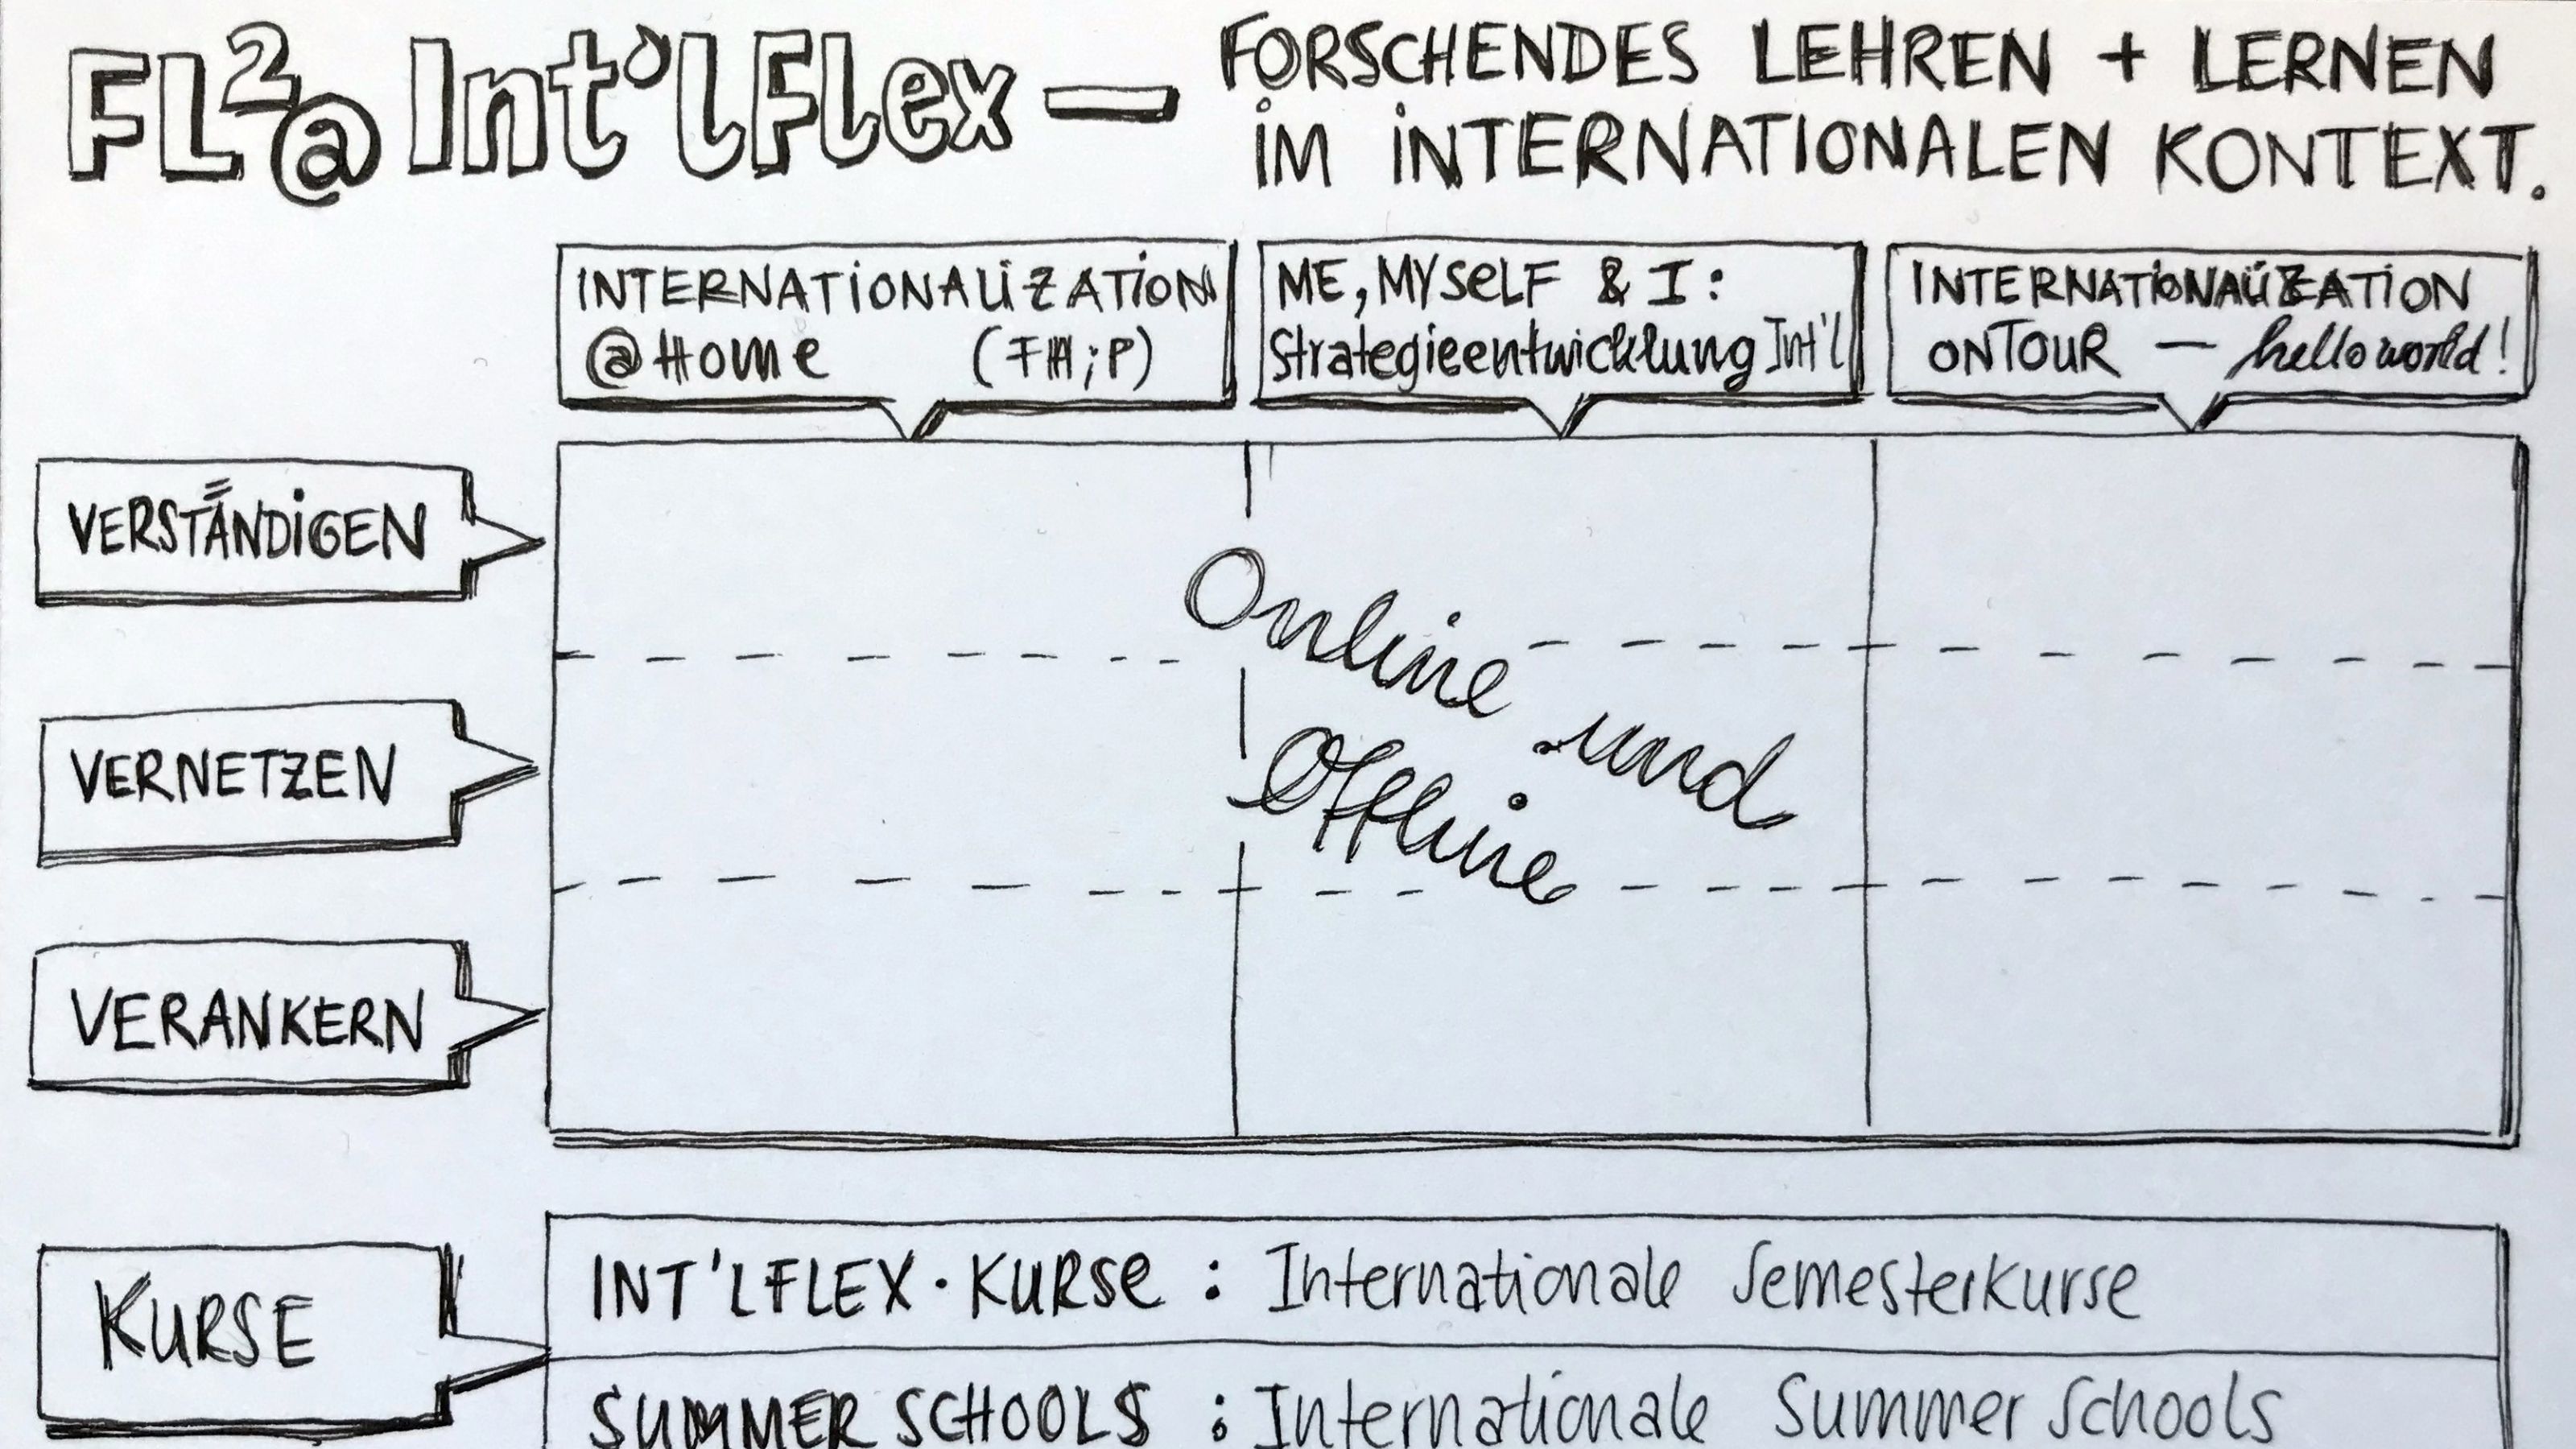 FL²@Int'lFlex — FORSCHENDES LEHREN + LERNEN
IM INTERNATIONALEN KONTEXT.
INTERNATIONALIZATION
@Home (FH;P)
ME, MYSELF & I:
Strategieentwicklung Int'l
INTERNATIONALIZATION
ONTOUR — hello world!
VERSTÄNDIGEN
VERNETZEN
VERANKERN
Online und
Offline
KURSE
INT'LFLEX·KURSE : Internationale Semesterkurse
SUMMER SCHOOLS : Internationale Summer Schools